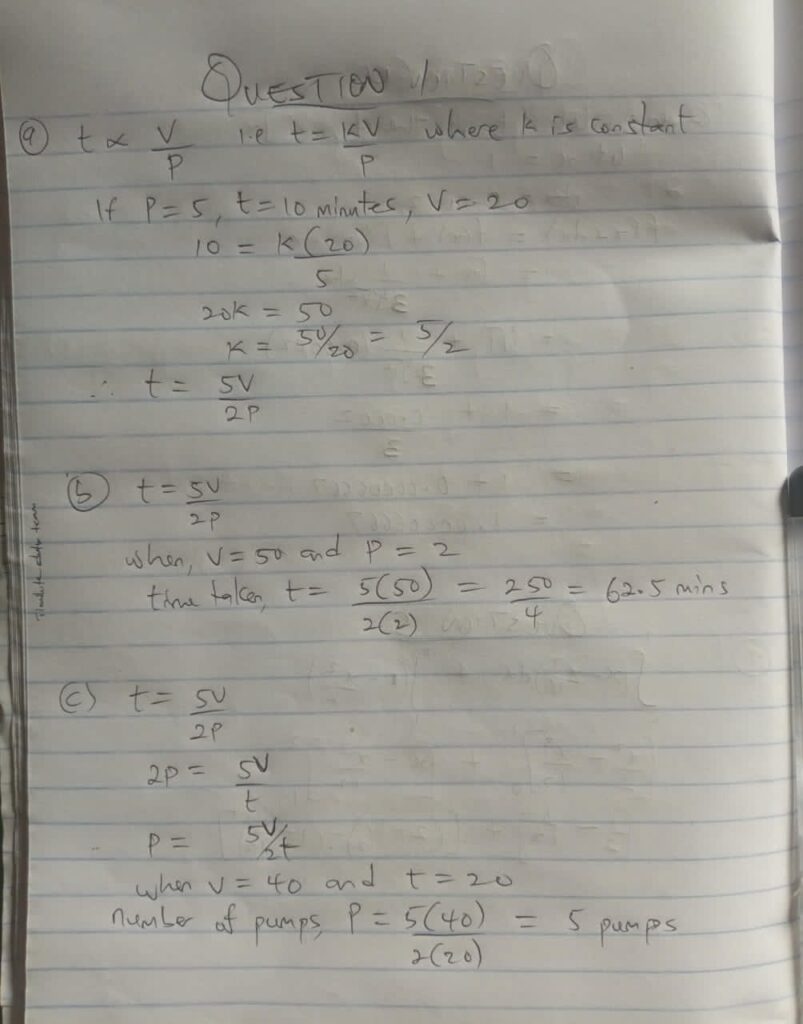 QUESTION
(a) t ∝ V/P i.e t = KV/P where k is constant
If P = 5, t = 10 minutes, V = 20
10 = K(20)/5
20K = 50
K = 50/20 = 5/2
∴ t = 5V/2P
(b) t = 5V/2P
when, V = 50 and P = 2
time taken, t = 5(50)/2(2) = 250/4 = 62.5 mins
(c) t = 5V/2P
2P = 5V/t
P = 5V/2t
when V = 40 and t = 20
number of pumps, P = 5(40)/2(20) = 5 pumps